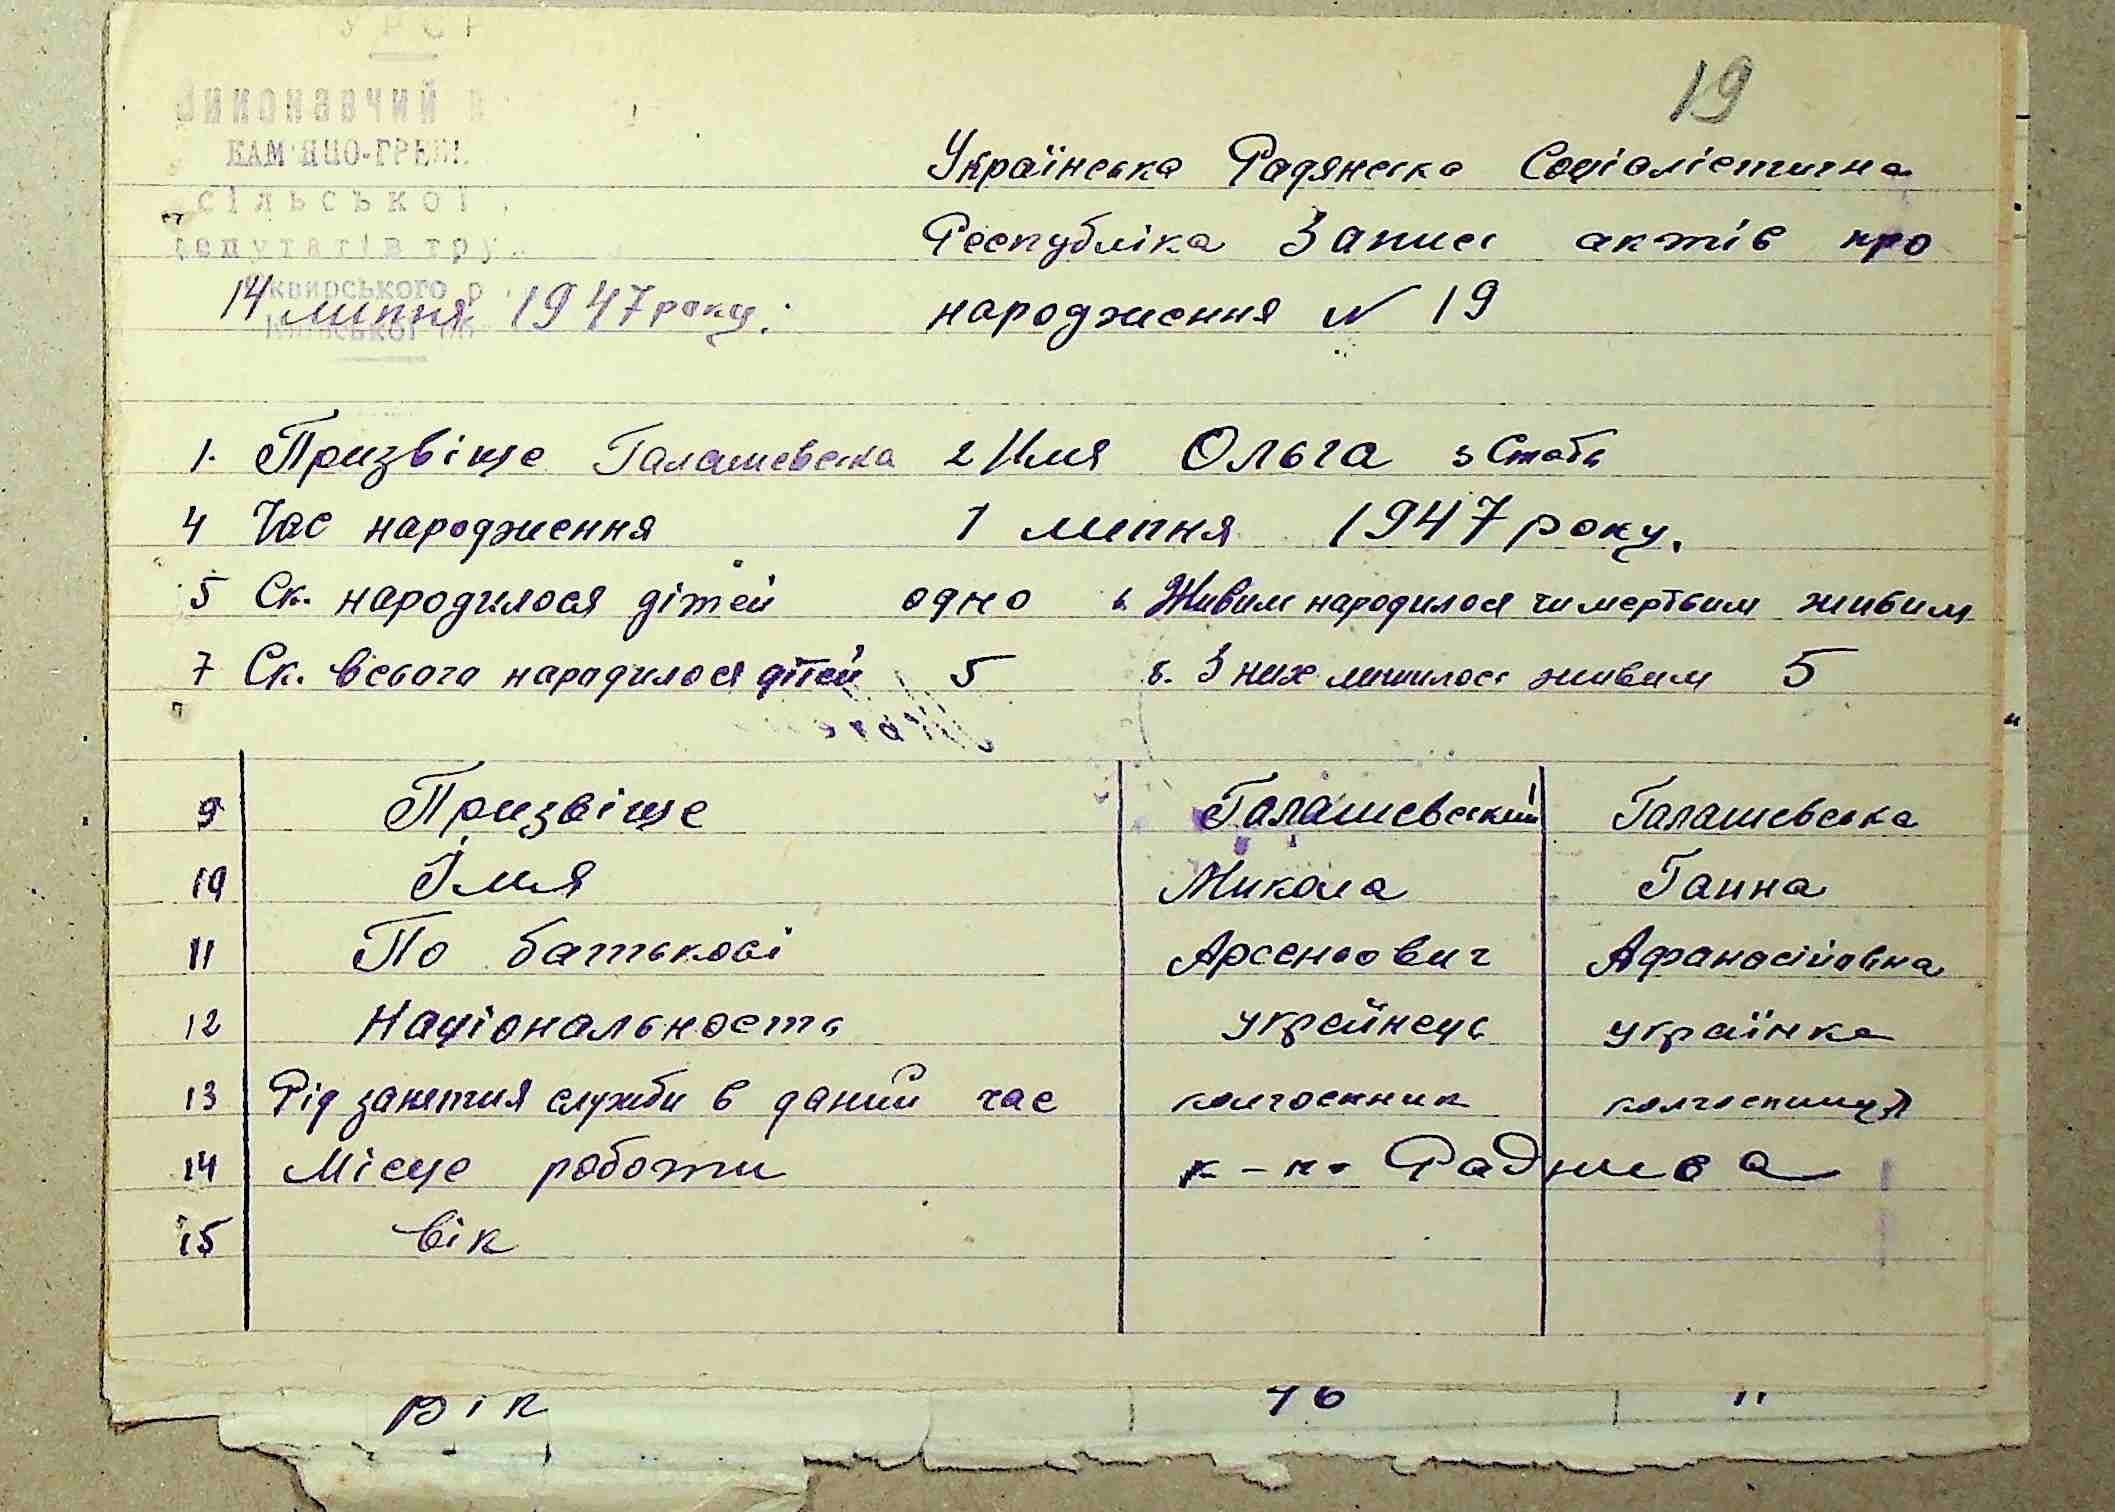 19
УРСР
Виконавчий
КАМ'ЯНО-ГРЕБ
сільської
депутатів тру
Сквирського р
Київської об
14 липня 1947 року.
Українська Радянська Соціалістична
Республіка Запис актів про
народження N 19
1. Призвіще Галашевська 2 Имя Ольга 3 Стать
4 Час народження 1 липня 1947 року.
5 Ск. народилося дітей одно 6. Живим народилося чи мертвим живим
7 Ск. всього народилося дітей 5 8. З них лишилося живим 5
9 Призвіще Галашевський Галашевська
10 Імя Микола Ганна
11 По батькові Арсеньович Афанасіївна
12 Національность українець українка
13 Рід занятия служби в даний час колгоспник колгоспниця
14 Місце роботи к-п.
15 Вік
Вік